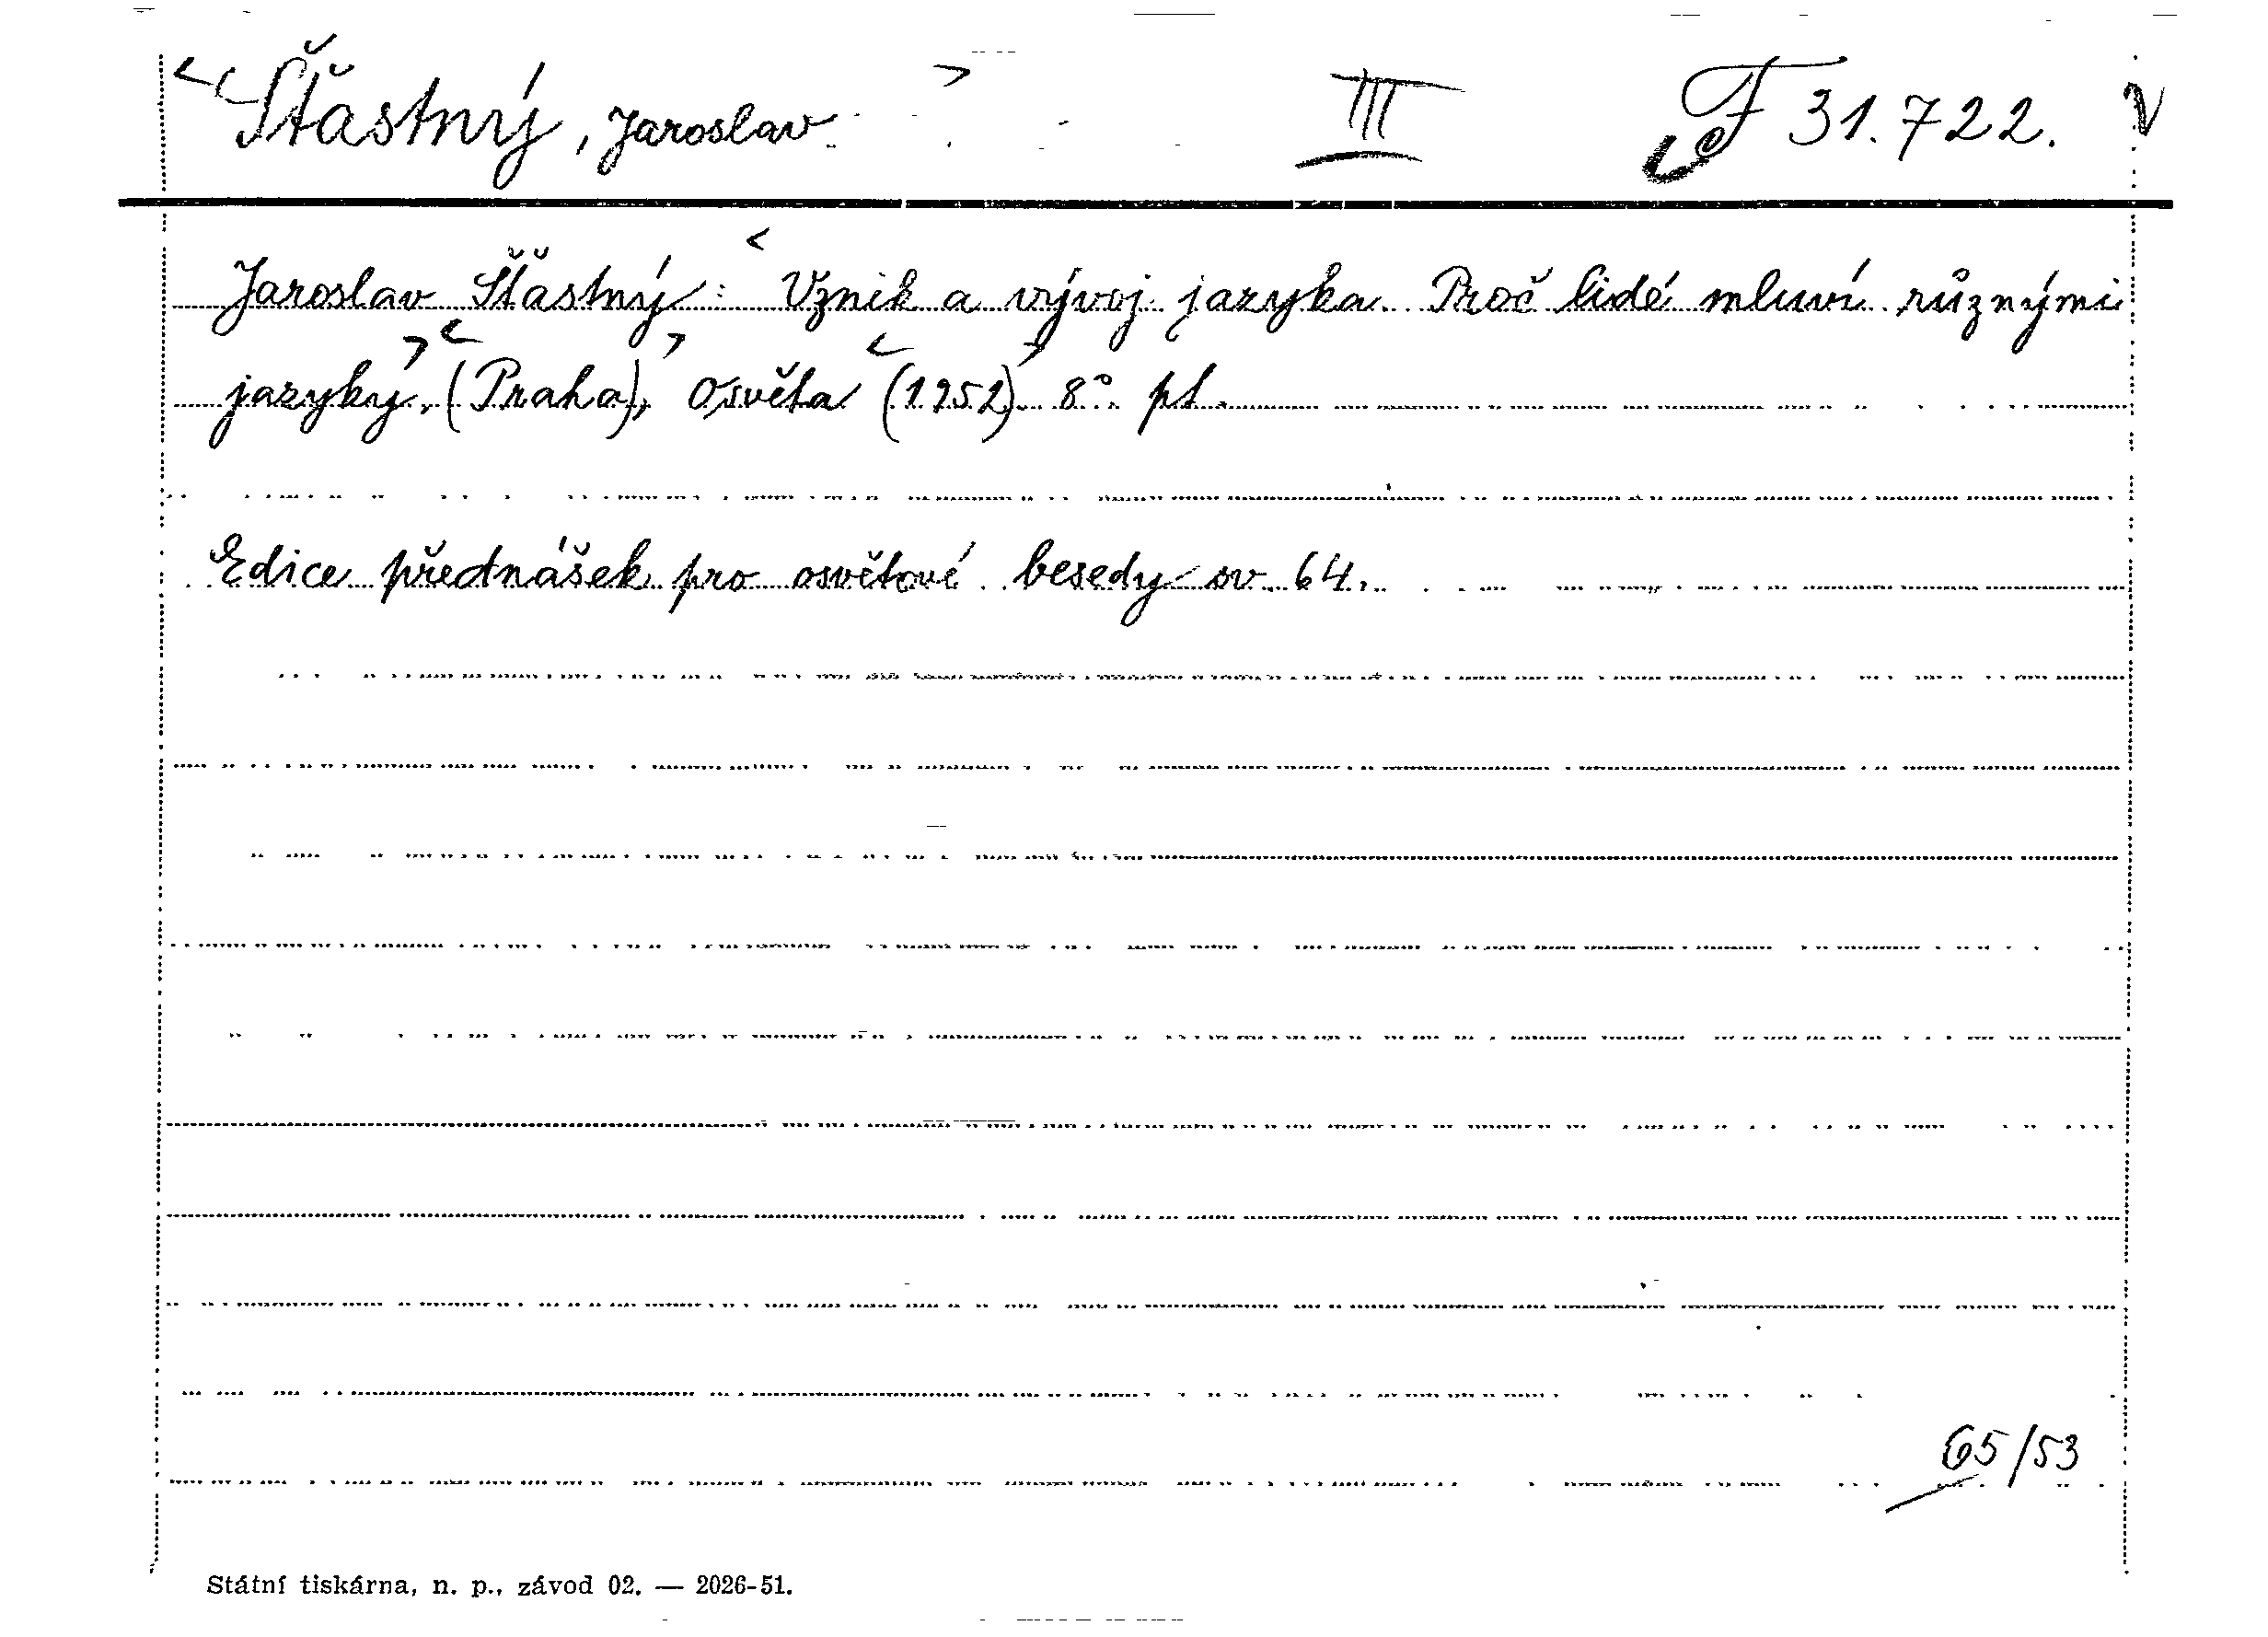 Šťastný, Jaroslav III F 31.722.
Jaroslav Šťastný: Vznik a vývoj jazyka. Proč lidé mluví různými
jazyky, (Praha), Osvěta (1952). 8° pl.
Edice přednášek pro osvětové besedy sv. 64.
65/53
Státní tiskárna, n. p., závod 02. — 2026-51.